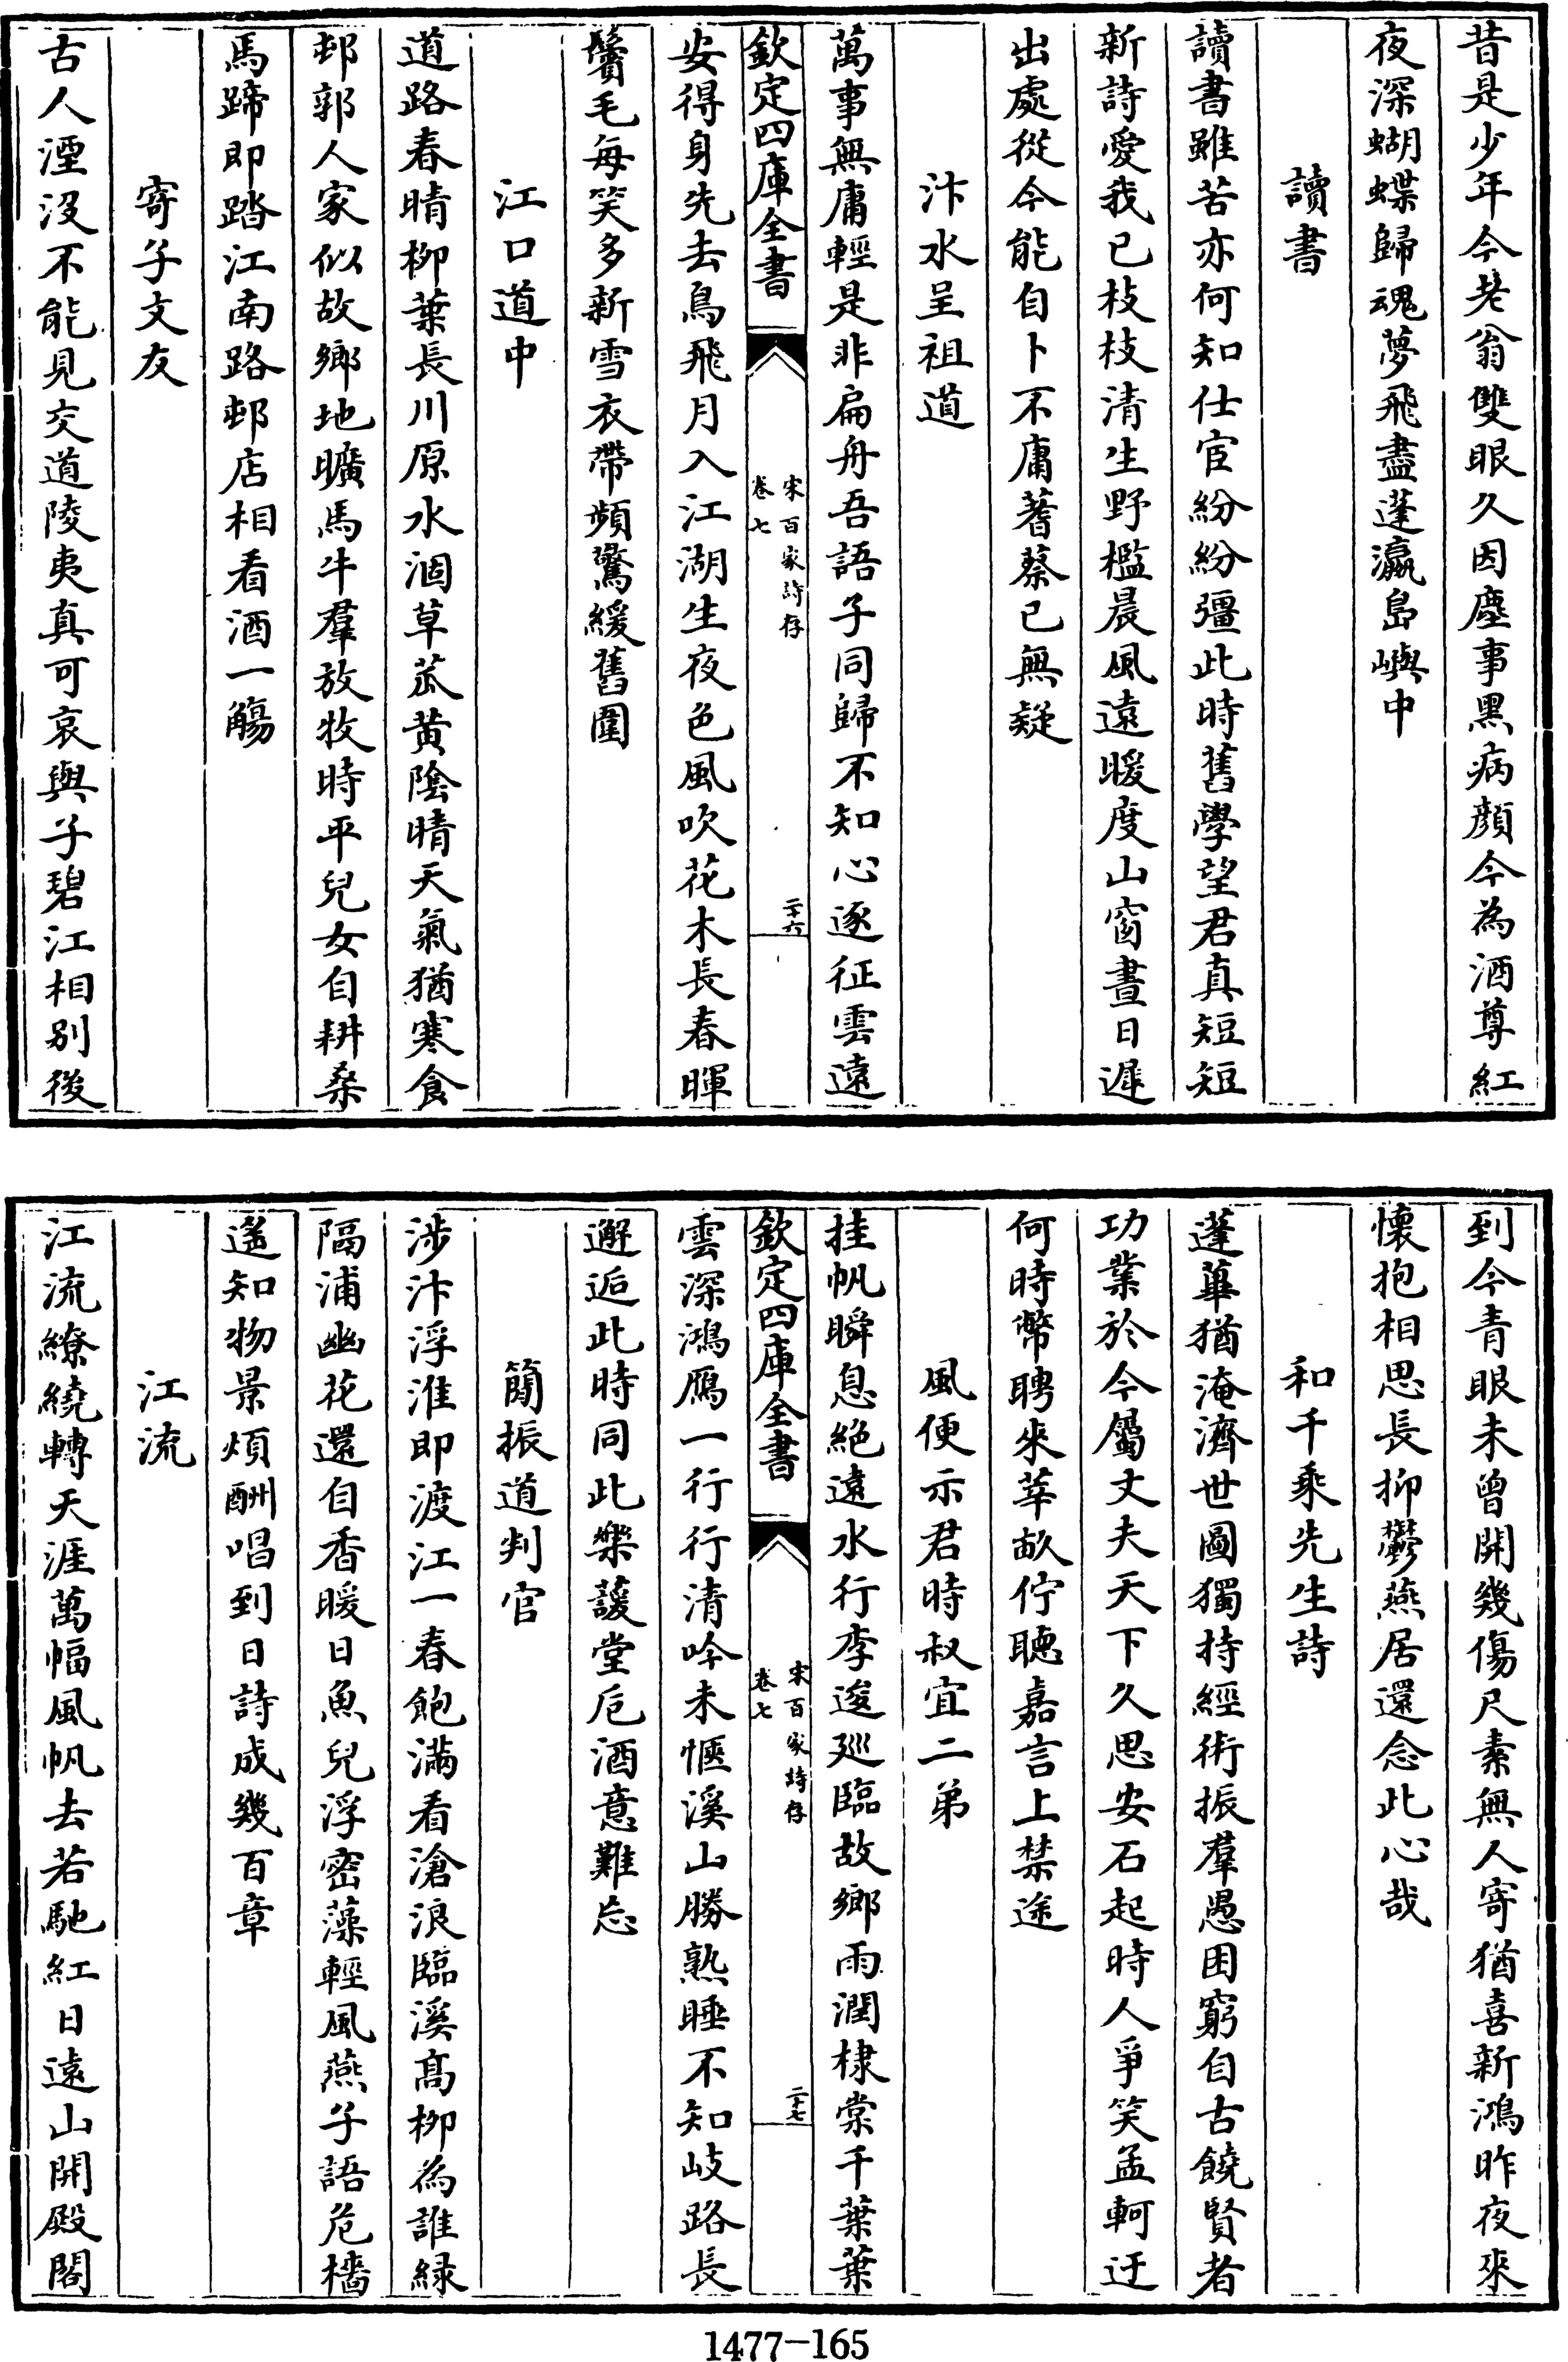 昔是少年今老翁雙眼久因塵事黑病顔今為酒尊紅
夜深蝴蝶歸魂夢飛盡蓬瀛島嶼中
讀書
讀書雖苦亦何知仕宦紛紛彊此時舊學望君真短短
新詩愛我已枝枝清生野檻晨風遠暖度山窗晝日遲
出處從今能自卜不庸蓍蔡已無疑
汴水呈祖道
萬事無庸輕是非扁舟吾語子同歸不知心逐征雲遠
欽定四庫全書
宋百家詩存
卷七
二十六
安得身先去鳥飛月入江湖生夜色風吹花木長春暉
鬢毛每笑多新雪衣帶頻驚緩舊圍
江口道中
道路春晴柳葉長川原水涸草芽黄陰晴天氣猶寒食
邨郭人家似故鄉地曠馬牛羣放牧時平兒女自耕桑
馬蹄即踏江南路邨店相看酒一觴
寄子文友
古人湮沒不能見交道陵夷真可哀與子碧江相别後
到今青眼未曾開幾傷尺素無人寄猶喜新鴻昨夜來
懷抱相思長抑鬱燕居還念此心哉
和千乘先生詩
蓬蓽猶淹濟世圖獨持經術振羣愚困窮自古饒賢者
功業於今屬丈夫天下久思安石起時人爭笑孟軻迂
何時幣聘來莘畝佇聽嘉言上禁途
風便示君時叔宜二弟
挂帆瞬息絶遠水行李逡廵臨故鄉雨潤棣棠千葉葉
欽定四庫全書
宋百家詩存
卷七
二十七
雲深鴻鴈一行行清吟未愜溪山勝熟睡不知岐路長
邂逅此時同此樂䕶堂巵酒意難忘
簡振道判官
涉汴浮淮即渡江一春飽滿看滄浪臨溪髙柳為誰緑
隔浦幽花還自香暖日魚兒浮密藻輕風燕子語危檣
遙知物景煩酬唱到日詩成幾百章
江流
江流繚繞轉天涯萬幅風帆去若馳紅日遠山開殿閣
1477-165